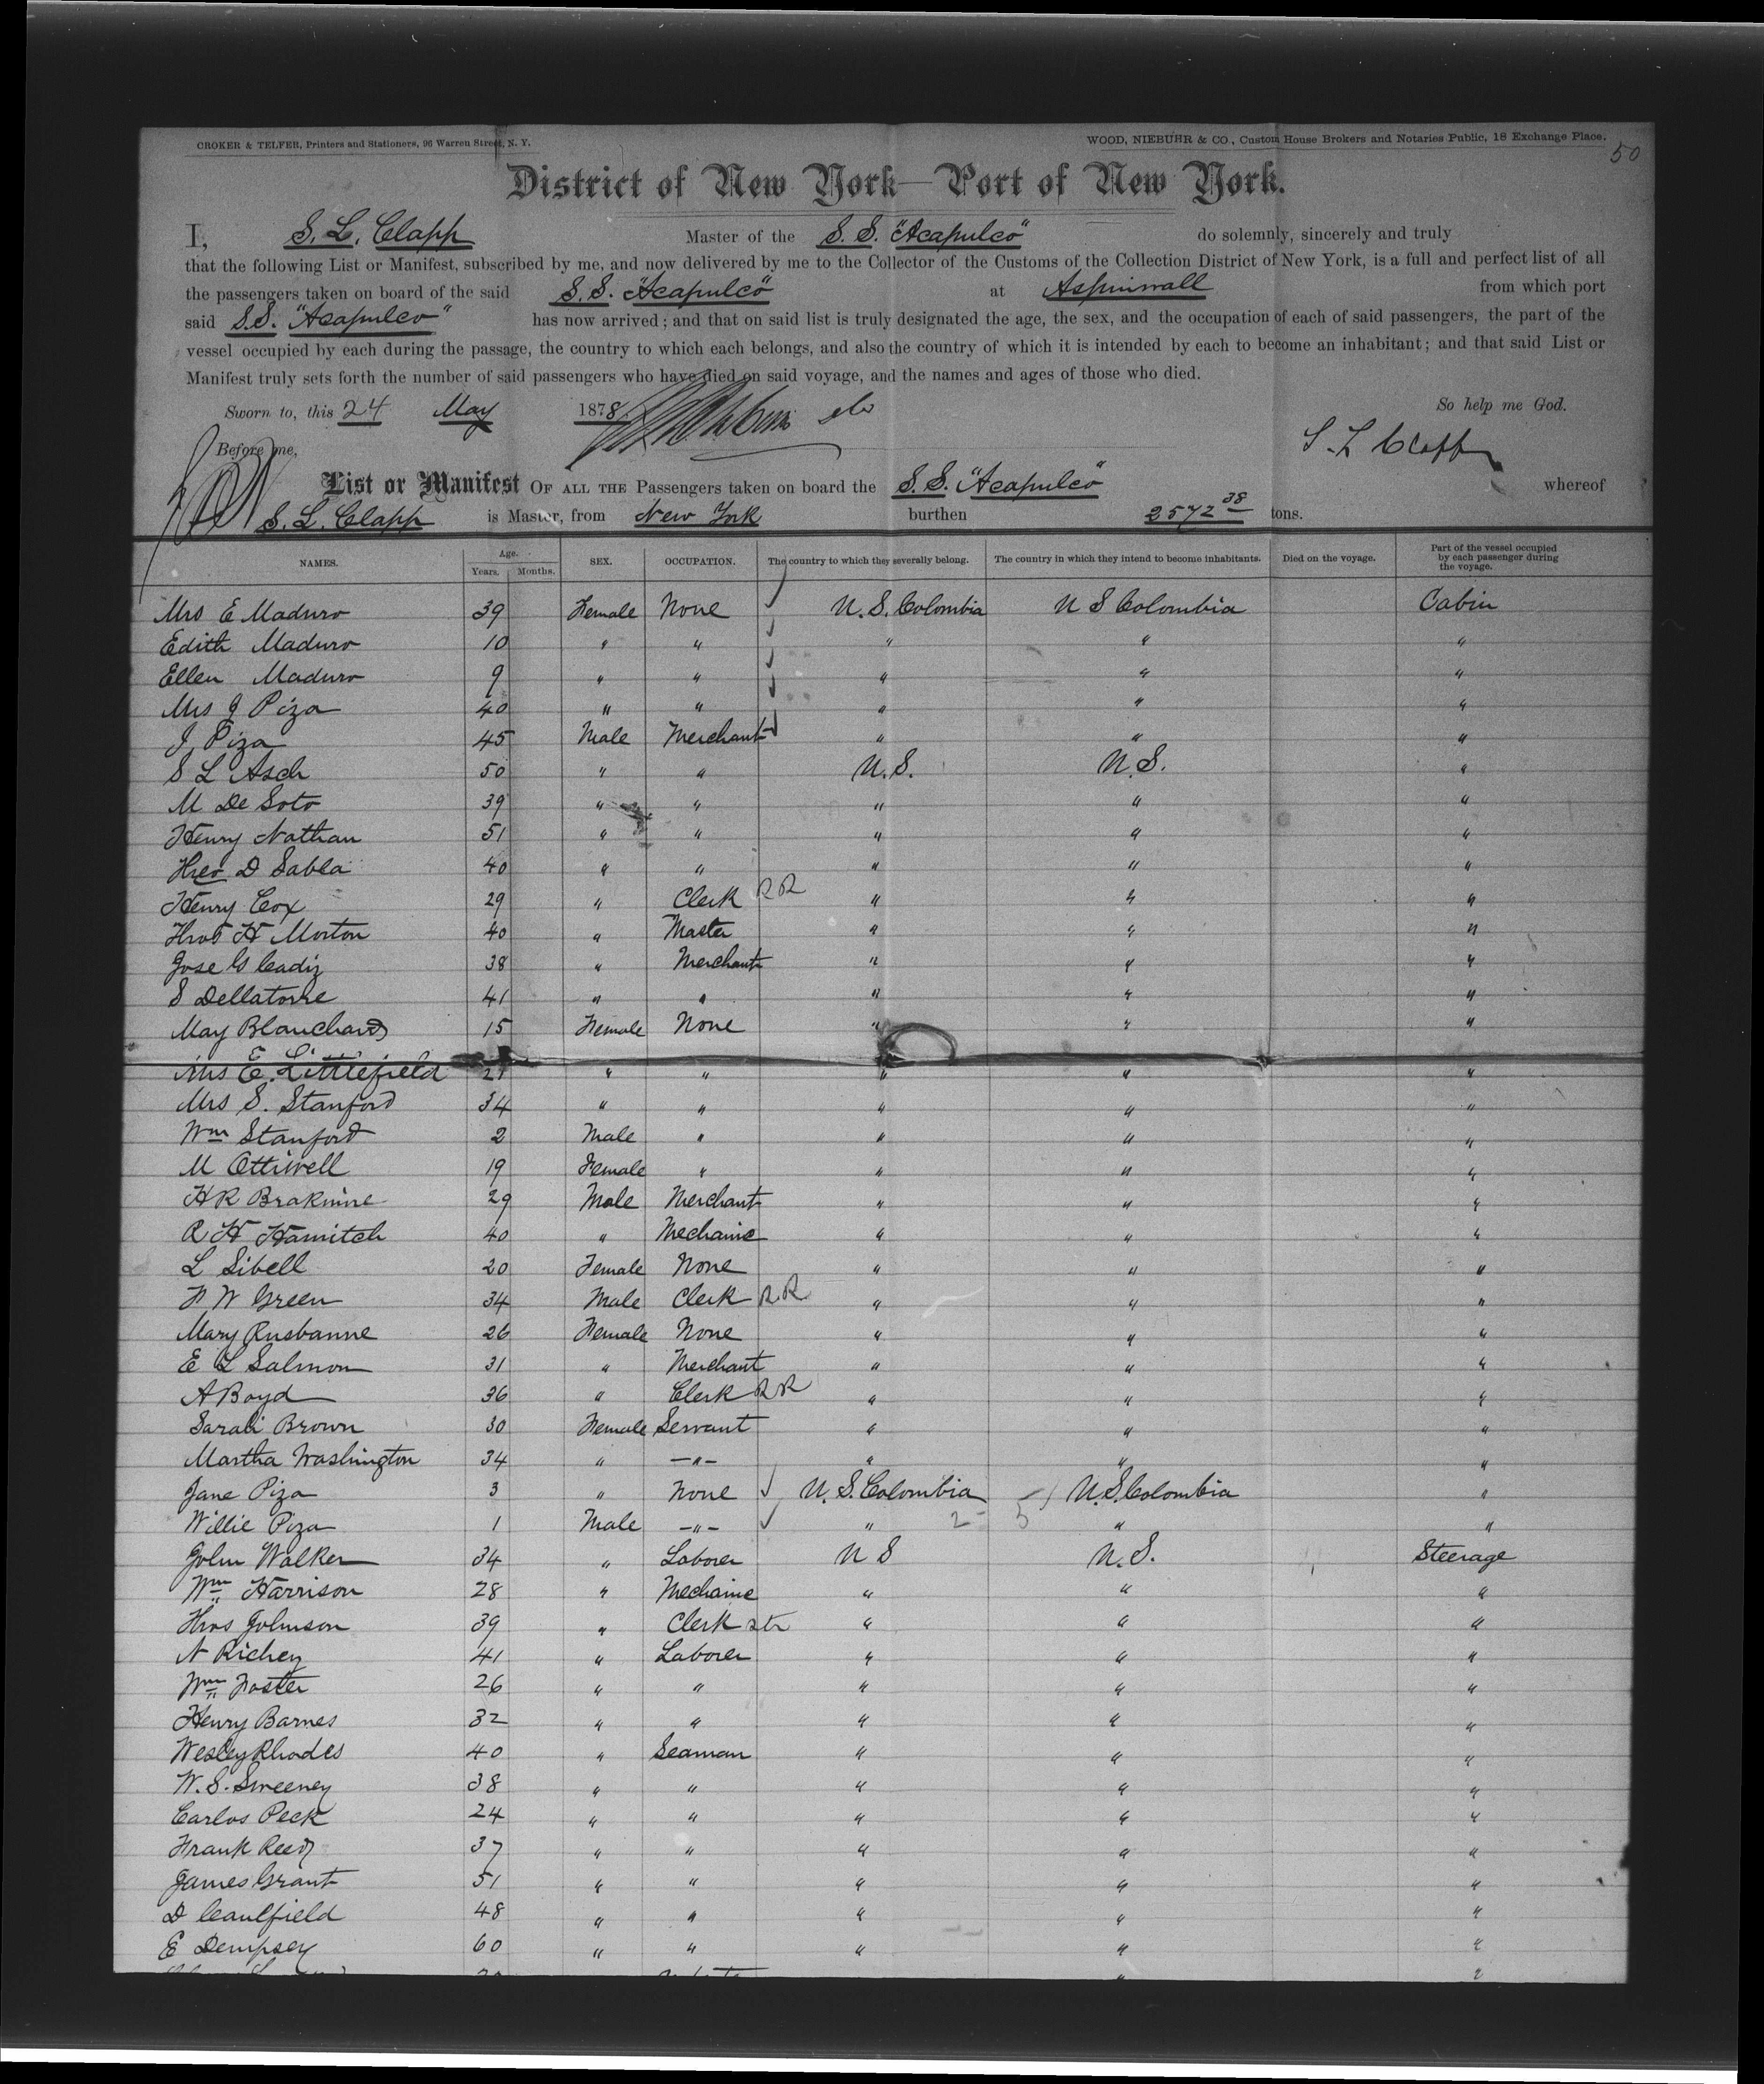 CROKER & TELFER, Printers and Stationers, 96 Warren Street, N. Y. WOOD, NIEBUHR & CO., Custom House Brokers and Notaries Public, 18 Exchange Place.
50
District of New York—Port of New York.
I, S. L. Clapp Master of the S. S. "Acapulco" do solemnly, sincerely and truly
that the following List or Manifest, subscribed by me, and now delivered by me to the Collector of the Customs of the Collection District of New York, is a full and perfect list of all
the passengers taken on board of the said S. S. "Acapulco" at Aspinwall from which port
said S.S. "Acapulco" has now arrived; and that on said list is truly designated the age, the sex, and the occupation of each of said passengers, the part of the
vessel occupied by each during the passage, the country to which each belongs, and also the country of which it is intended by each to become an inhabitant; and that said List or
Manifest truly sets forth the number of said passengers who have died on said voyage, and the names and ages of those who died.
Sworn to, this 24 May 1878 So help me God.
Before me, S. L Clapp
List or Manifest OF ALL THE Passengers taken on board the S. S. "Acapulco" whereof
S. L. Clapp is Master, from New York burthen 2572 38 tons.
NAMES. Age. Years. Months. SEX. OCCUPATION. The country to which they severally belong. The country in which they intend to become inhabitants. Died on the voyage. Part of the vessel occupied by each passenger during the voyage.
Mrs E Maduro 39 Female None U. S. Colombia U S Colombia Cabin
Edith Maduro 10 " " " " "
Ellen Maduro 9 " " " " "
Mrs J Piza 40 " " " " "
J. Piza 45 Male Merchant " " "
S L Asch 50 " " U. S. U. S. "
M De Soto 39 " " " " "
Henry Nathan 51 " " " " "
Theo D Sabla 40 " " " " "
Henry Cox 29 " Clerk RR " " "
Thos H Morton 40 " Master " " "
Jose G Cadiz 38 " Merchant " " "
S Dellatorre 41 " " " " "
May Blanchard 15 Female None " " "
Mrs E. Littlefield 21 " " " " "
Mrs S. Stanford 34 " " " " "
Wm Stanford 2 Male " " " "
M Ottiwell 19 Female " " " "
H R 29 Male Merchant " " "
R H Hamitch 40 " Mechanic " " "
L Sibell 20 Female None " " "
F W Green 34 Male Clerk R.R. " " "
Mary 26 Female None " " "
E L Salmon 31 " Merchant " " "
A Boyd 36 " Clerk RR " " "
Sarah Brown 30 Female Servant " " "
Martha Washington 34 " —"— " " "
Jane Piza 3 " None U. S. Colombia U. S. Colombia "
Willie Piza 1 Male —"— " 2 5 " "
John Walker 34 " Laborer U S U. S. Steerage
Wm Harrison 28 " Mechanic " " "
Thos Johnson 39 " Clerk str " " "
N Richey 41 " Laborer " " "
Wm Foster 26 " " " " "
Henry Barnes 32 " " " " "
Wesley Rhodes 40 " Seaman " " "
W. S. Sweeney 38 " " " " "
Carlos Peck 24 " " " " "
Frank Reed 37 " " " " "
James Grant 51 " " " " "
D Caulfield 48 " " " " "
E Dempsey 60 " " " " "